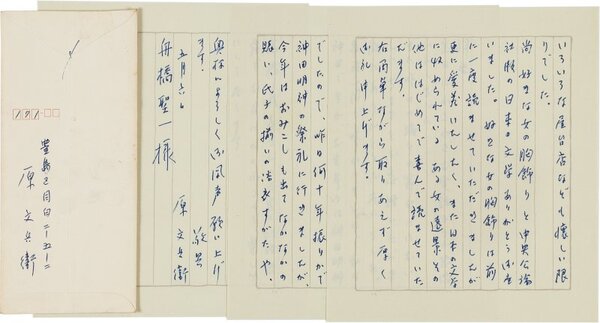 いろいろな屋台店なども懐しい限
りでした。
尚好きな女の胸飾りと中央公論
社版の日本の文学ありがとうござ
いました。好きな女の胸飾りは前
に一度読ませていただきましたが
更に愛着いたしたく、また日本の文学
に収められている ある女の遠景その
他ははじめてで喜んで読ませていた
だきます。
ながら取りあえず厚く
御礼申上げます。
でしたので、昨日何十年振りかで
神田明神の祭礼に行きましたが、
今年はおみこしも出てなかなかの
賑い、氏子の揃いの浴衣すがたや、
奥様によろしく御風声願い上げ
ます。
敬具
五月六日
原文兵衛
舟橋聖一様
171
豊島区目白二ー五ー一二
原文兵衛